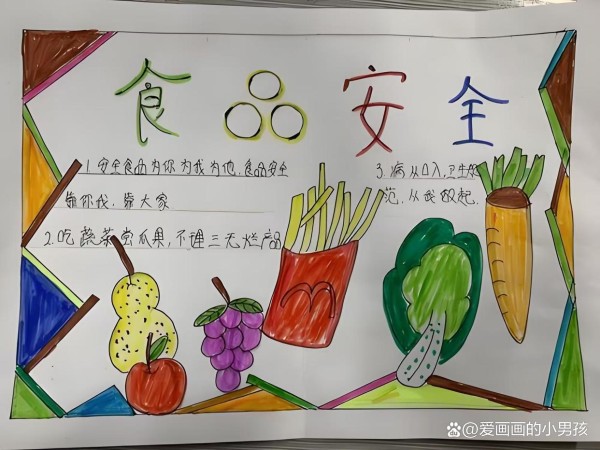 食品安全
1.安全食品为你为我为他,食品安全
靠你我,靠大家
2.吃蔬菜尝瓜果,不理三无烂产品
3.病从口入,卫生
范,从我做起.
@爱画画的小男孩